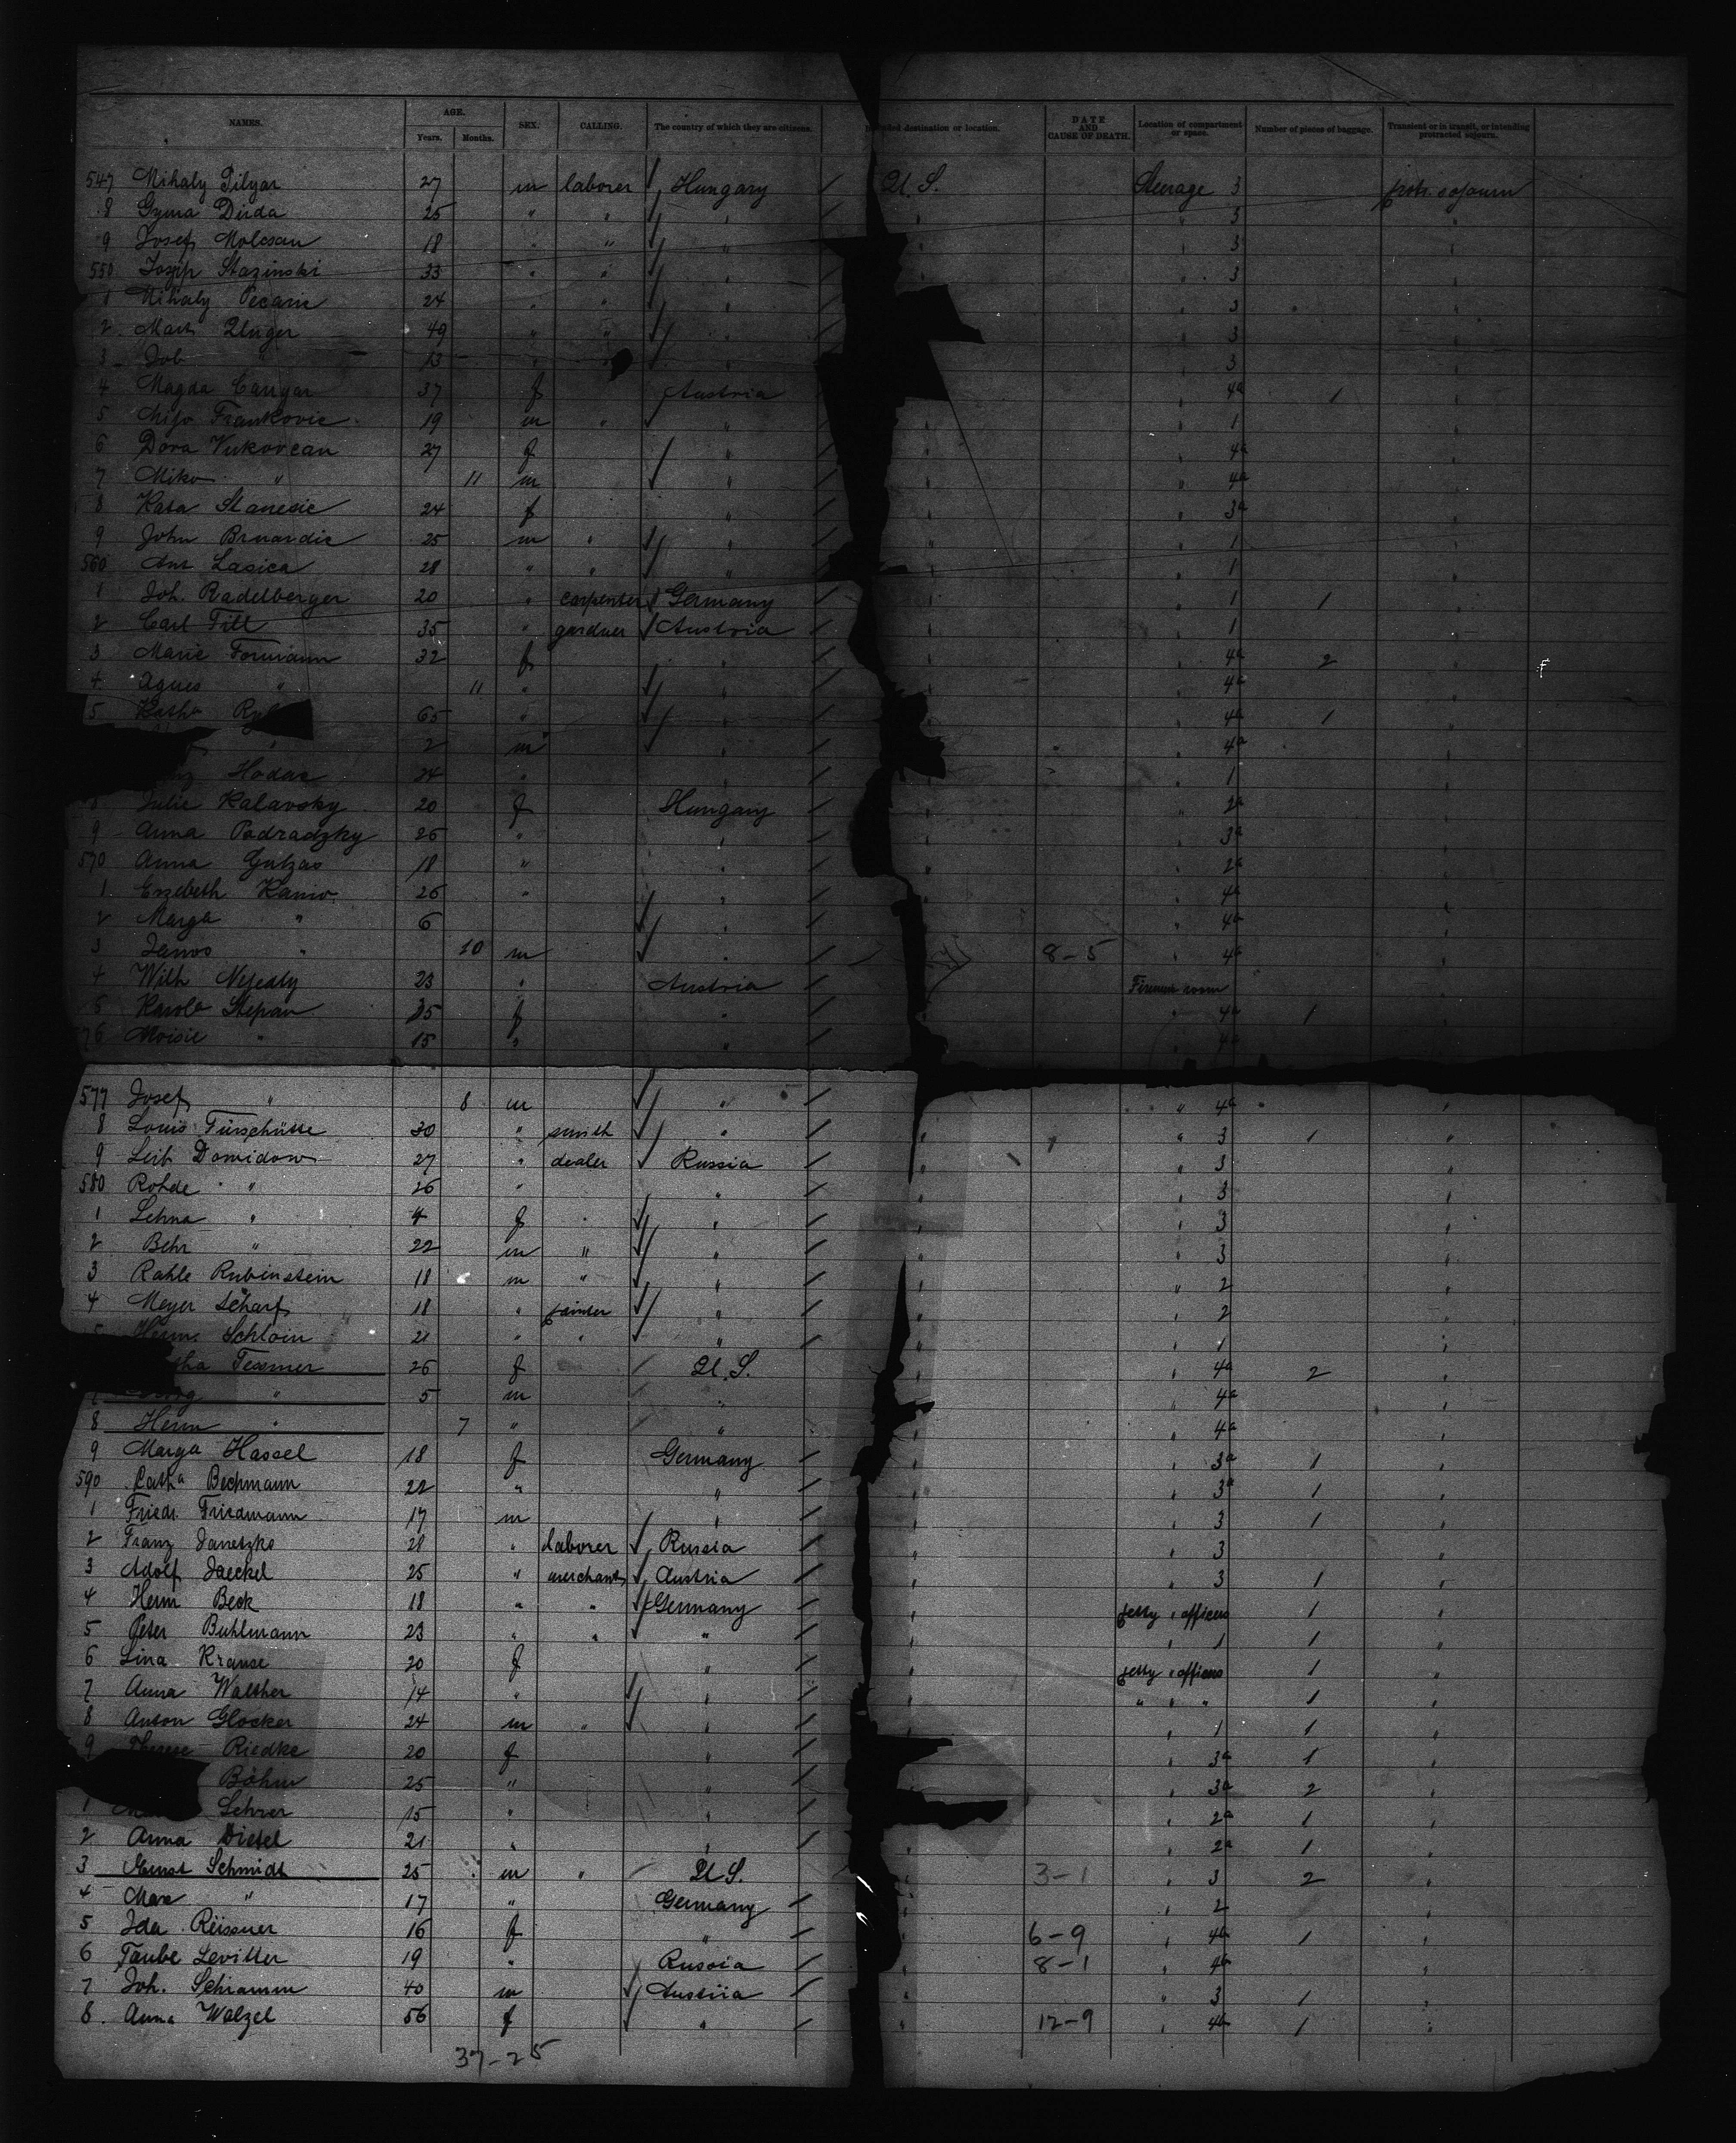 NAMES. AGE. Years. Months. SEX. CALLING. The country of which they are citizens. destination or location. DATE AND CAUSE OF DEATH. Location of compartment or space. Number of pieces of baggage. Transient or in transit, or intending protracted sojourn.
547 Mihaly Pilyar 27 m laborer Hungary U.S. Steerage 3 protr. sojourn
8 Gyma Duda 25 " " " " " 3 "
9 Josef Molcsan 18 " " " " " 3 "
550 Josip Stazinski 33 " " " " " 3 "
1 Mihaly Pecaric 24 " " " " " 3 "
2 Mart Unger 49 " " " " " 3 "
3 Job " 13 " " " " " 3 "
4 Magda Canyar 37 f Austria " " 4a 1 "
5 Mijo Frankovic 19 m " " " " 1 "
6 Dora Vukovcan 27 f " " " 4a "
7 Miko " 11 m " " " 4a "
8 Kata Stanesic 24 f " " " 3a "
9 John Brnardic 25 m " " " " 1 "
560 Ant Lasica 28 " " " " " 1 "
1 Joh. Radelberger 20 " carpenter Germany " " 1 1 "
2 Carl Till 35 " gardner Austria " " 1 "
3 Marie Formann 32 f " " " 4a 2 " f
4 Agnes " 11 " " " " 4a "
5 Katha 65 " " " " 4a 1 "
" 2 m " " " 4a "
Hodac 24 " " " " 1 "
8 Julie Kalavsky 20 f Hungary " " 2a "
9 Anna Podradzky 26 " " " " 3a "
570 Anna Gulzas 18 " " " " 2a "
1 Erzebeth Kaniw 26 " " " " 4a "
2 Marga " 6 " " " 4a "
3 Janos " 10 m " " 8-5 " 4a "
4 Wilh Nejealy 23 " Austria " room "
5 Karola Stepan 35 f " " " 4a 1 "
576 Moisie " 15 " " " " 4a "
577 Josef " 8 m " " 4a "
8 Louis Türschütte 30 " smith " " " 3 1 "
9 Leib Domidow 27 " dealer Russia " " 3 "
580 Rohde " 26 " " " " 3 "
1 Lehna " 4 f " " " " 3 "
2 Behr " 22 m " " " " 3 "
3 Rahle Rubinstein 18 m " " " " 2 "
4 Meyer Scharf 18 " painter " " " 2 "
5 Herm. Schloin 21 " " " " " 1 "
tha Tessmer 26 f U.S. " " 4a 2 "
" 5 m " " " 4a "
8 Herm " 7 " " " " 4a "
9 Marga Hassel 18 f Germany " " 3a 1 "
590 Catha Bechmann 22 " " " " 3a 1 "
1 Friedr. Friedmann 17 m " " " 3 1 "
2 Franz Janetzko 28 " laborer Russia " " 3 "
3 Adolf Jaeckel 25 " merchant Austria " " 3 1 "
4 Herm Beck 18 " " Germany " petty officers 1 "
5 Peter Buhlmann 23 " " " " " 1 1 "
6 Lina Krause 20 f " " petty officers 1 "
7 Anna Walther 14 " " " " " " 1 "
8 Anton Glocker 24 m " " " " 1 1 "
9 Therese Riedke 20 f " " " 3a 1 "
Böhm 25 " " " " 3a 2 "
1 Lehrer 15 " " " " 2a 1 "
2 Anna Diesel 21 " " " " 2a 1 "
3 Ernst Schmidt 25 m " U.S. " 3-1 " 3 2 "
4 Max " 17 " Germany " " 2 "
5 Ida Reissner 16 f " " 6-9 " 4b 1 "
6 Taube Levitter 19 " Russia " 8-1 " 4b "
7 Joh. Schramm 40 m Austria " " 3 1 "
8 Anna Walzel 56 f " " 12-9 " 4b 1 "
37-25